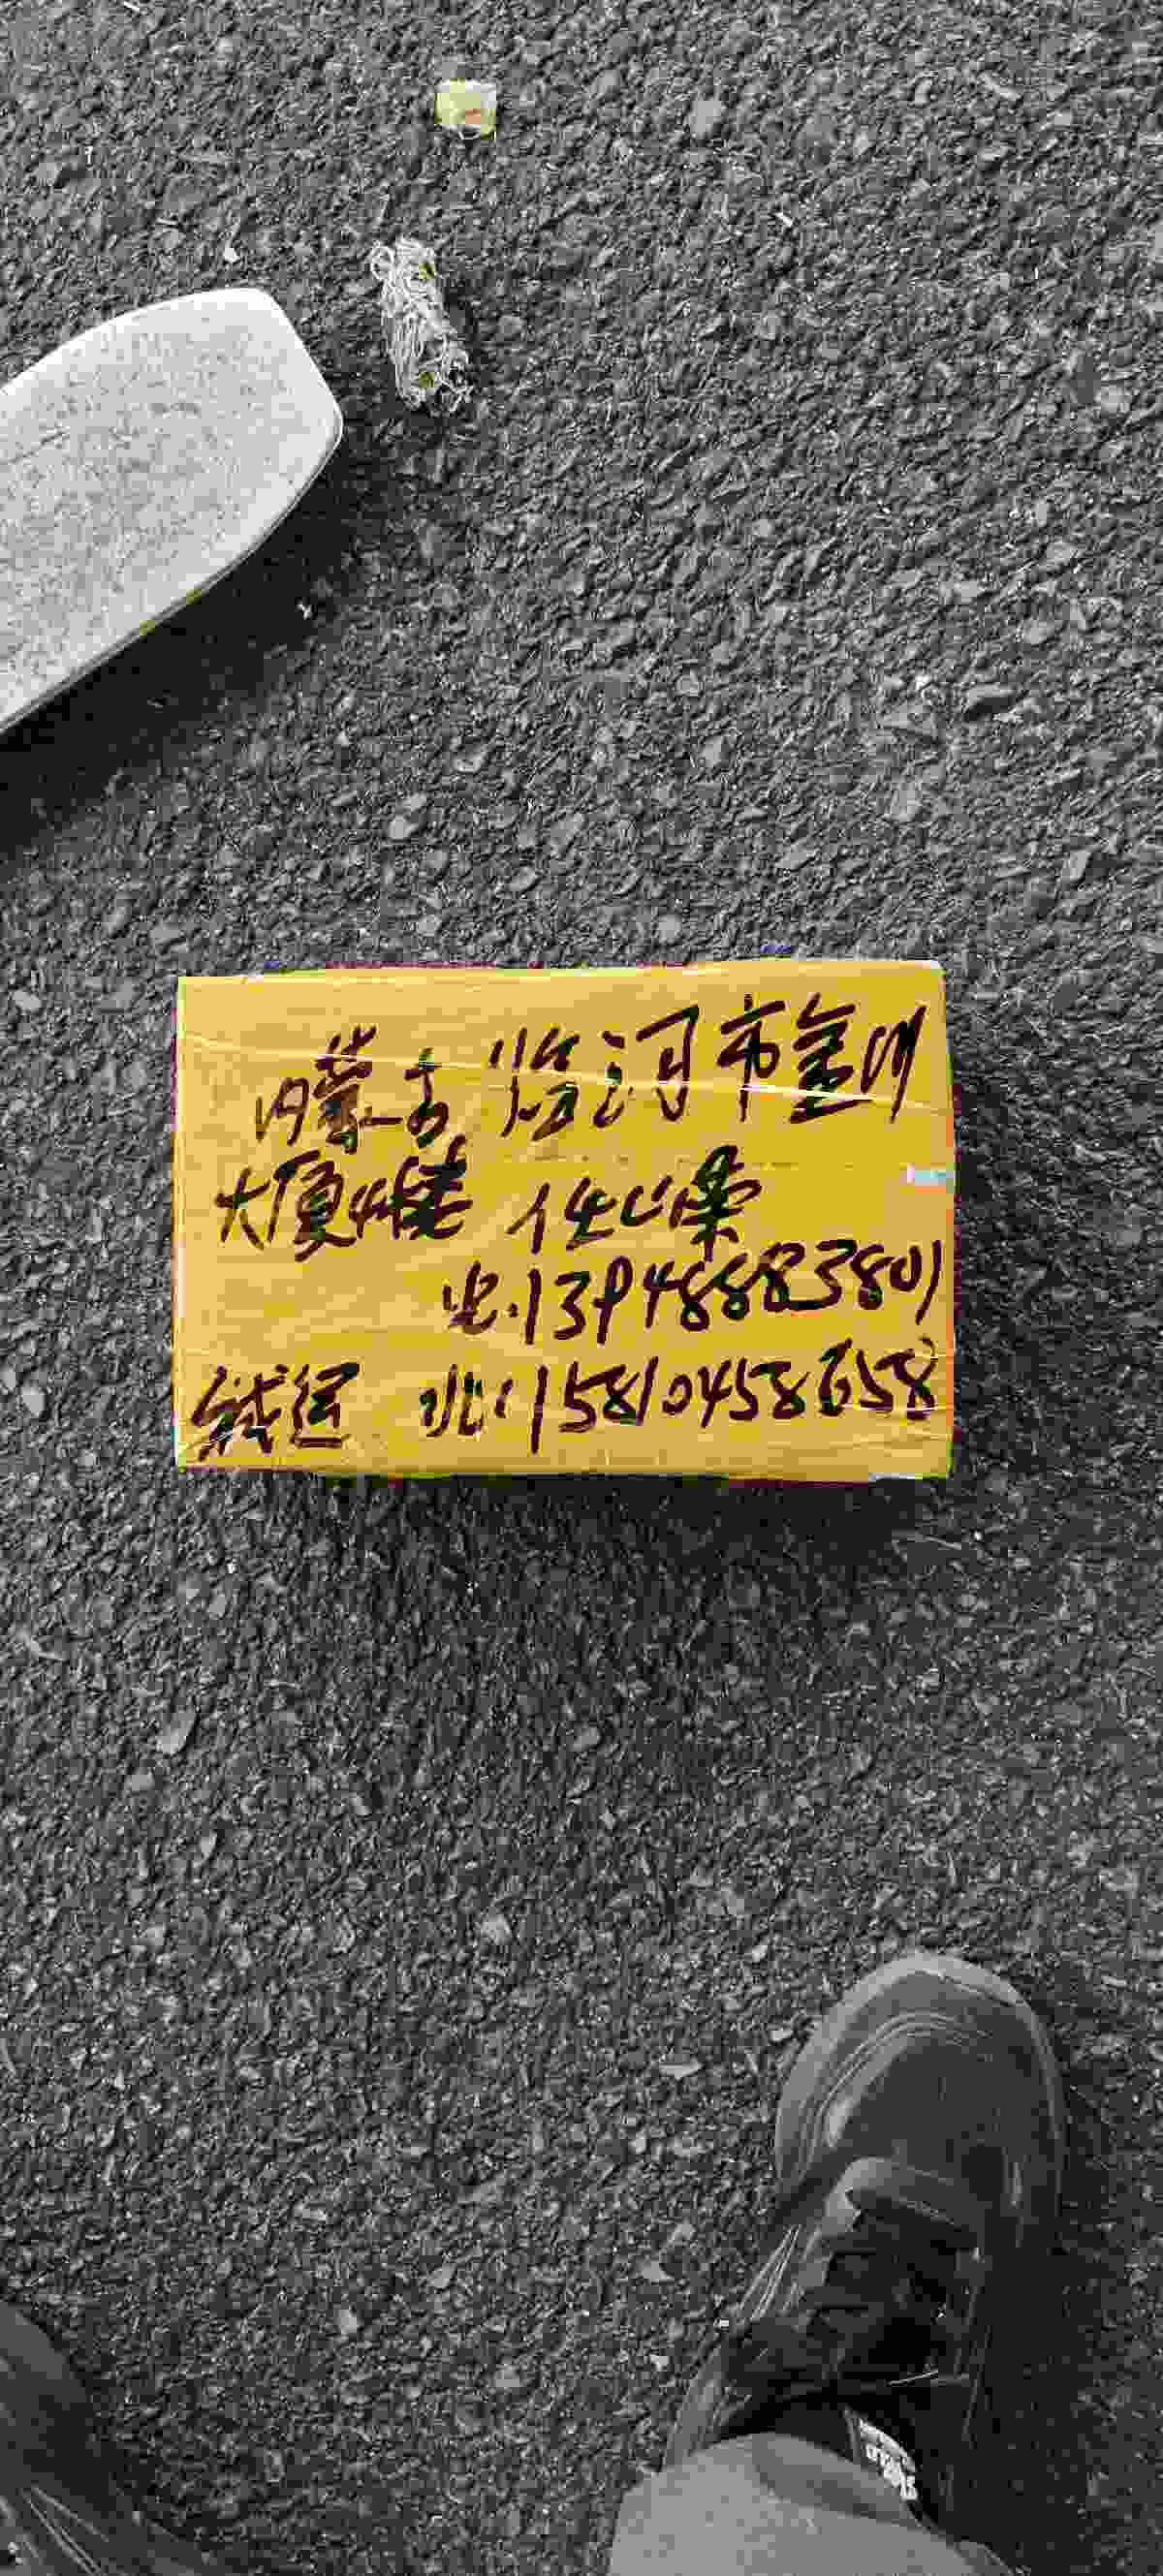 内蒙古 临河市金川
大厦4楼
电:13948883801
电:15810458658